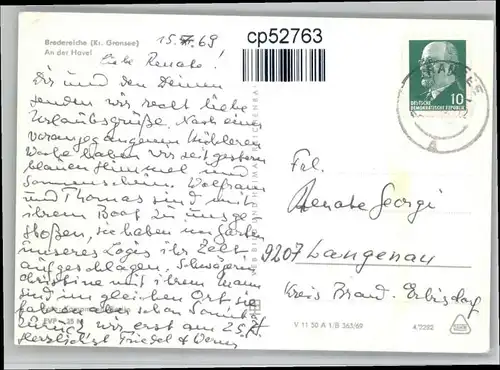 Bredereiche (Kr. Gransee)
An der Havel
15. 7. 69
cp52763
Liebe Renate!
Dir und den Deinen
senden wir recht liebe
Urlaubsgrüße. Nach einer
vorangegangenen kühleren
Woche haben wir seit gestern
blauen Himmel und
Sonnenschein. Wolfram
und Thomas sind mit
ihrem Boot zu uns ge-
stoßen, sie haben im Garten
unseres Logis ihr Zelt
aufgeschlagen, Schwägerin
Christine mit ihrem Mann
sind im gleichen Ort sie
fahren aber schon Sonntag
zurück, wir erst am 25.7.
Herzlichst Friedel + Werner
DEUTSCHE
DEMOKRATISCHE REPUBLIK
10
GRANSEE
Frl.
Renate Georgi
9207 Langenau
Kreis Brand-Erbisdorf
V 11 50 A 1/B 363/69
4/2282